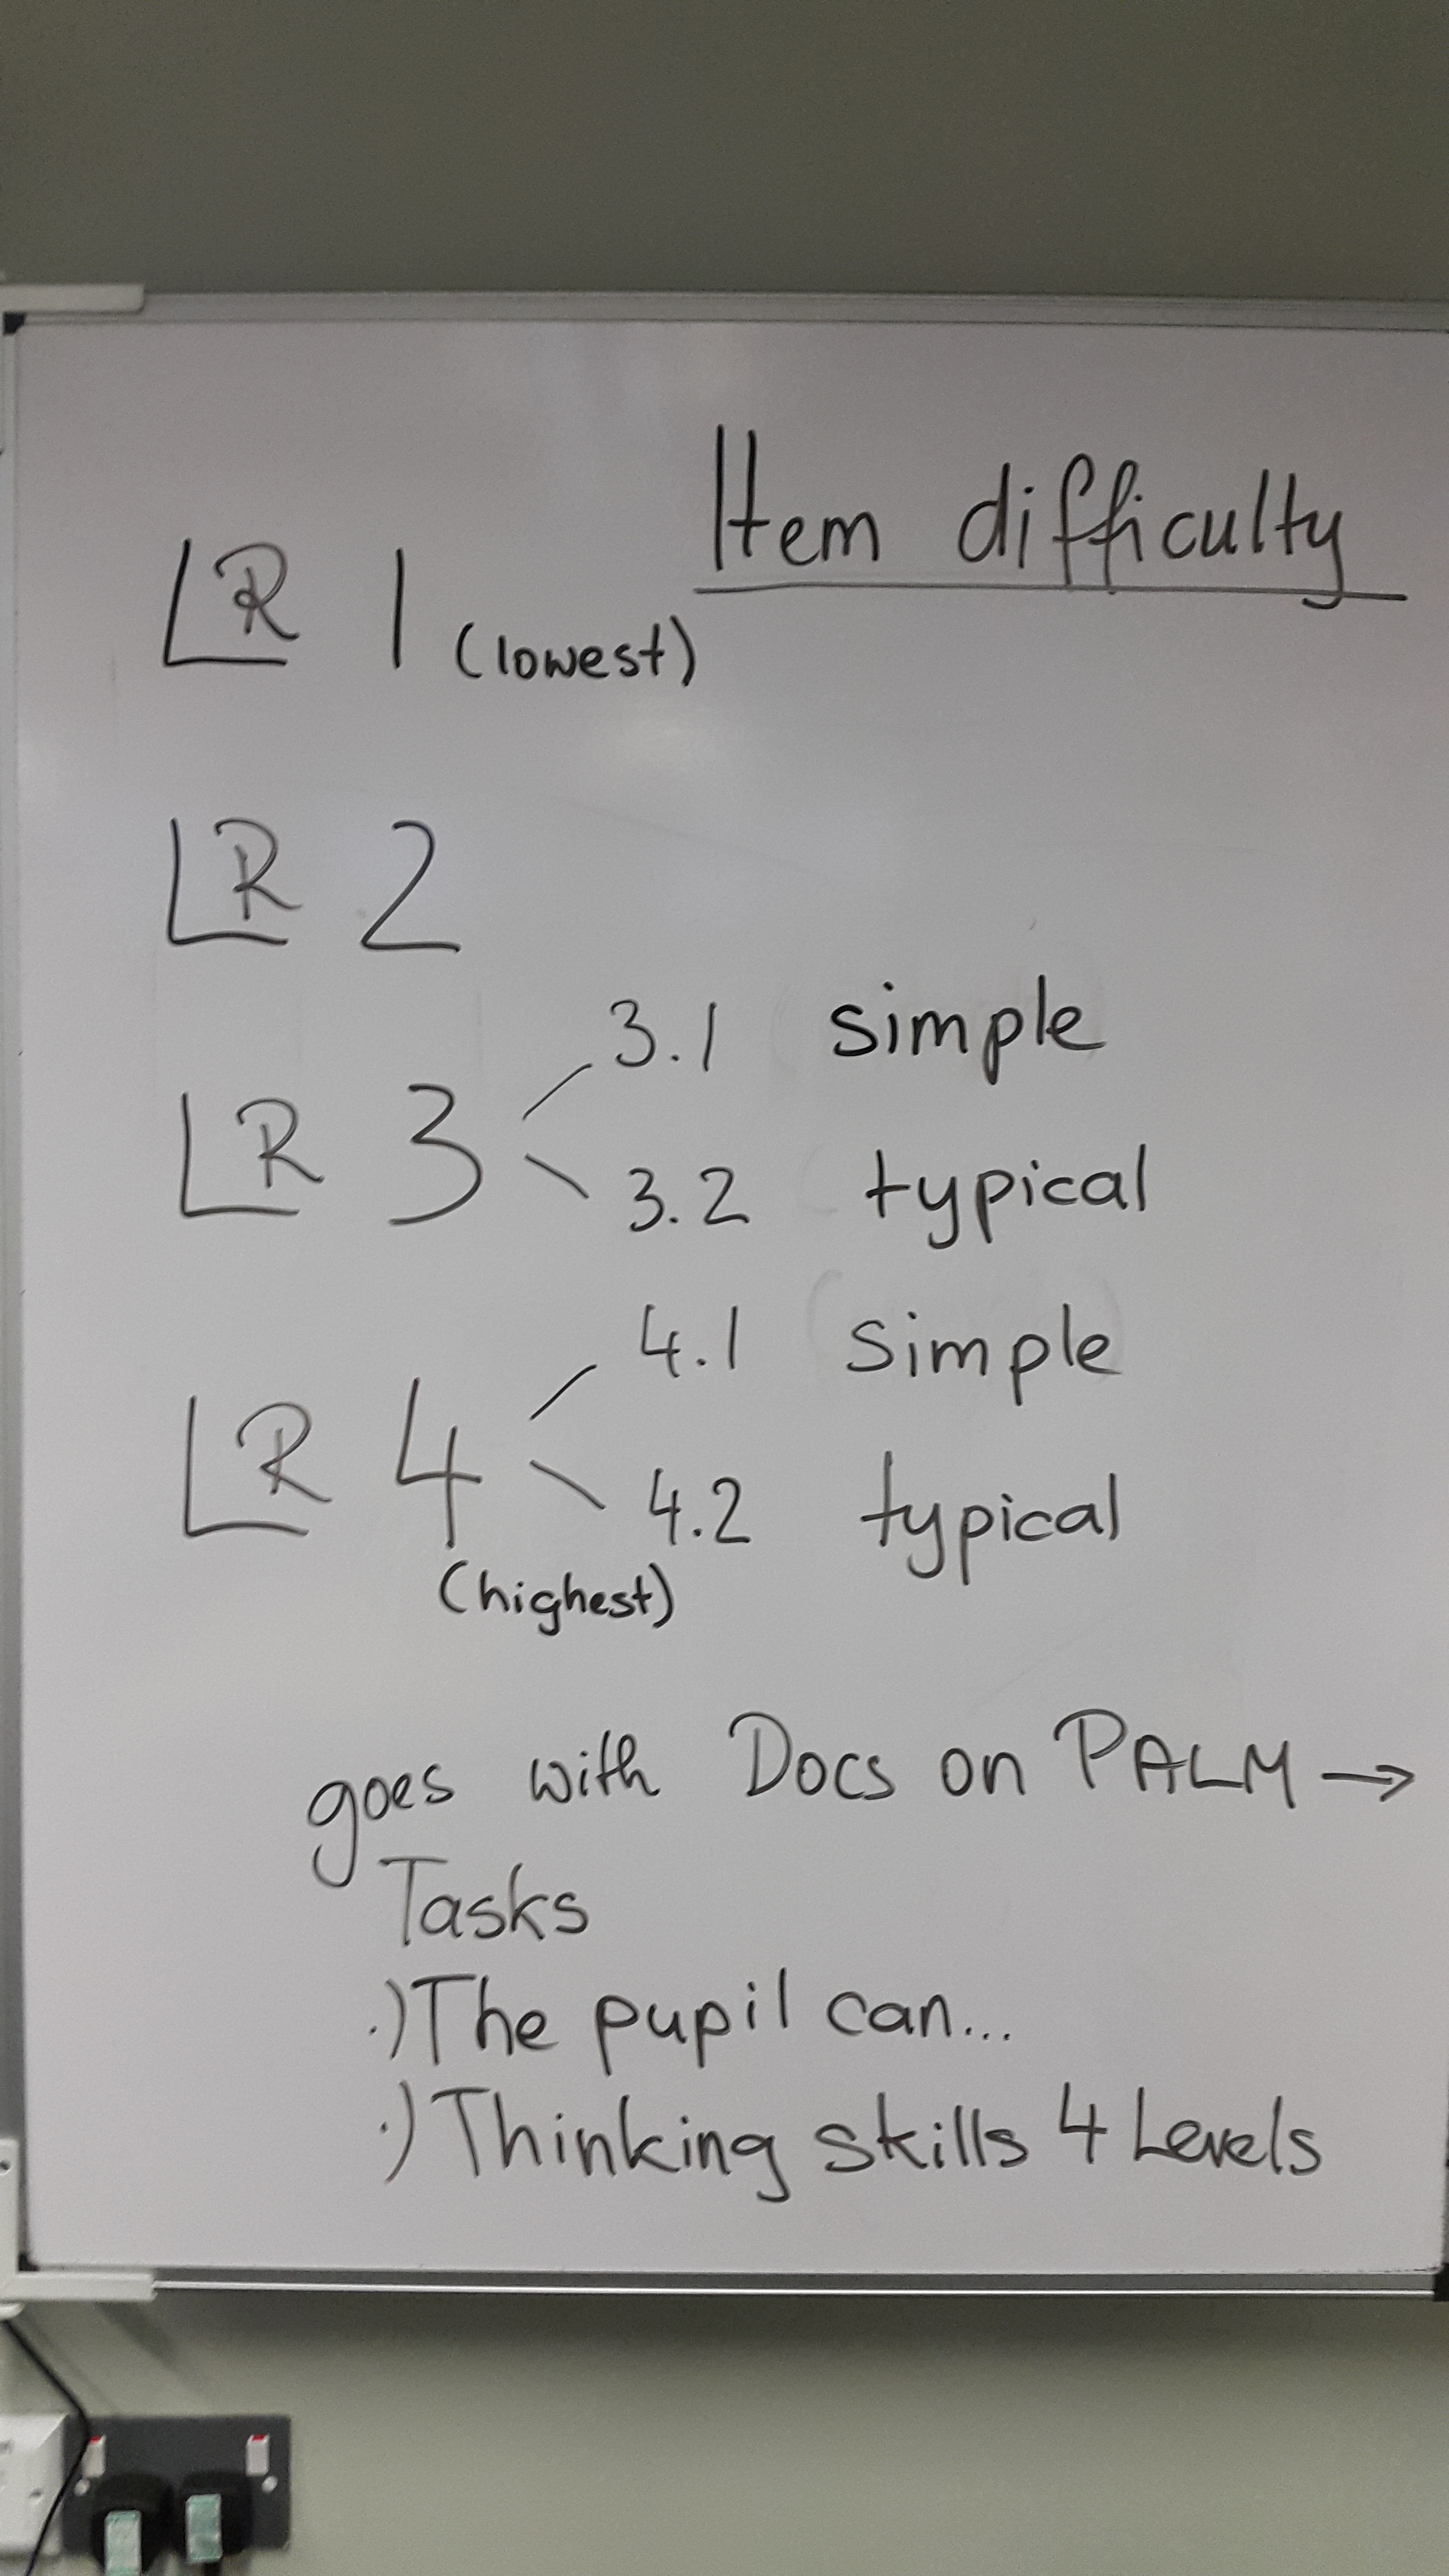 Item difficulty
LR 1 (lowest)
LR 2
3.1 simple
LR 3
3.2 typical
4.1 simple
LR 4
4.2 typical
(highest)
goes with Docs on PALM →
Tasks
.) The pupil can...
.) Thinking skills 4 Levels